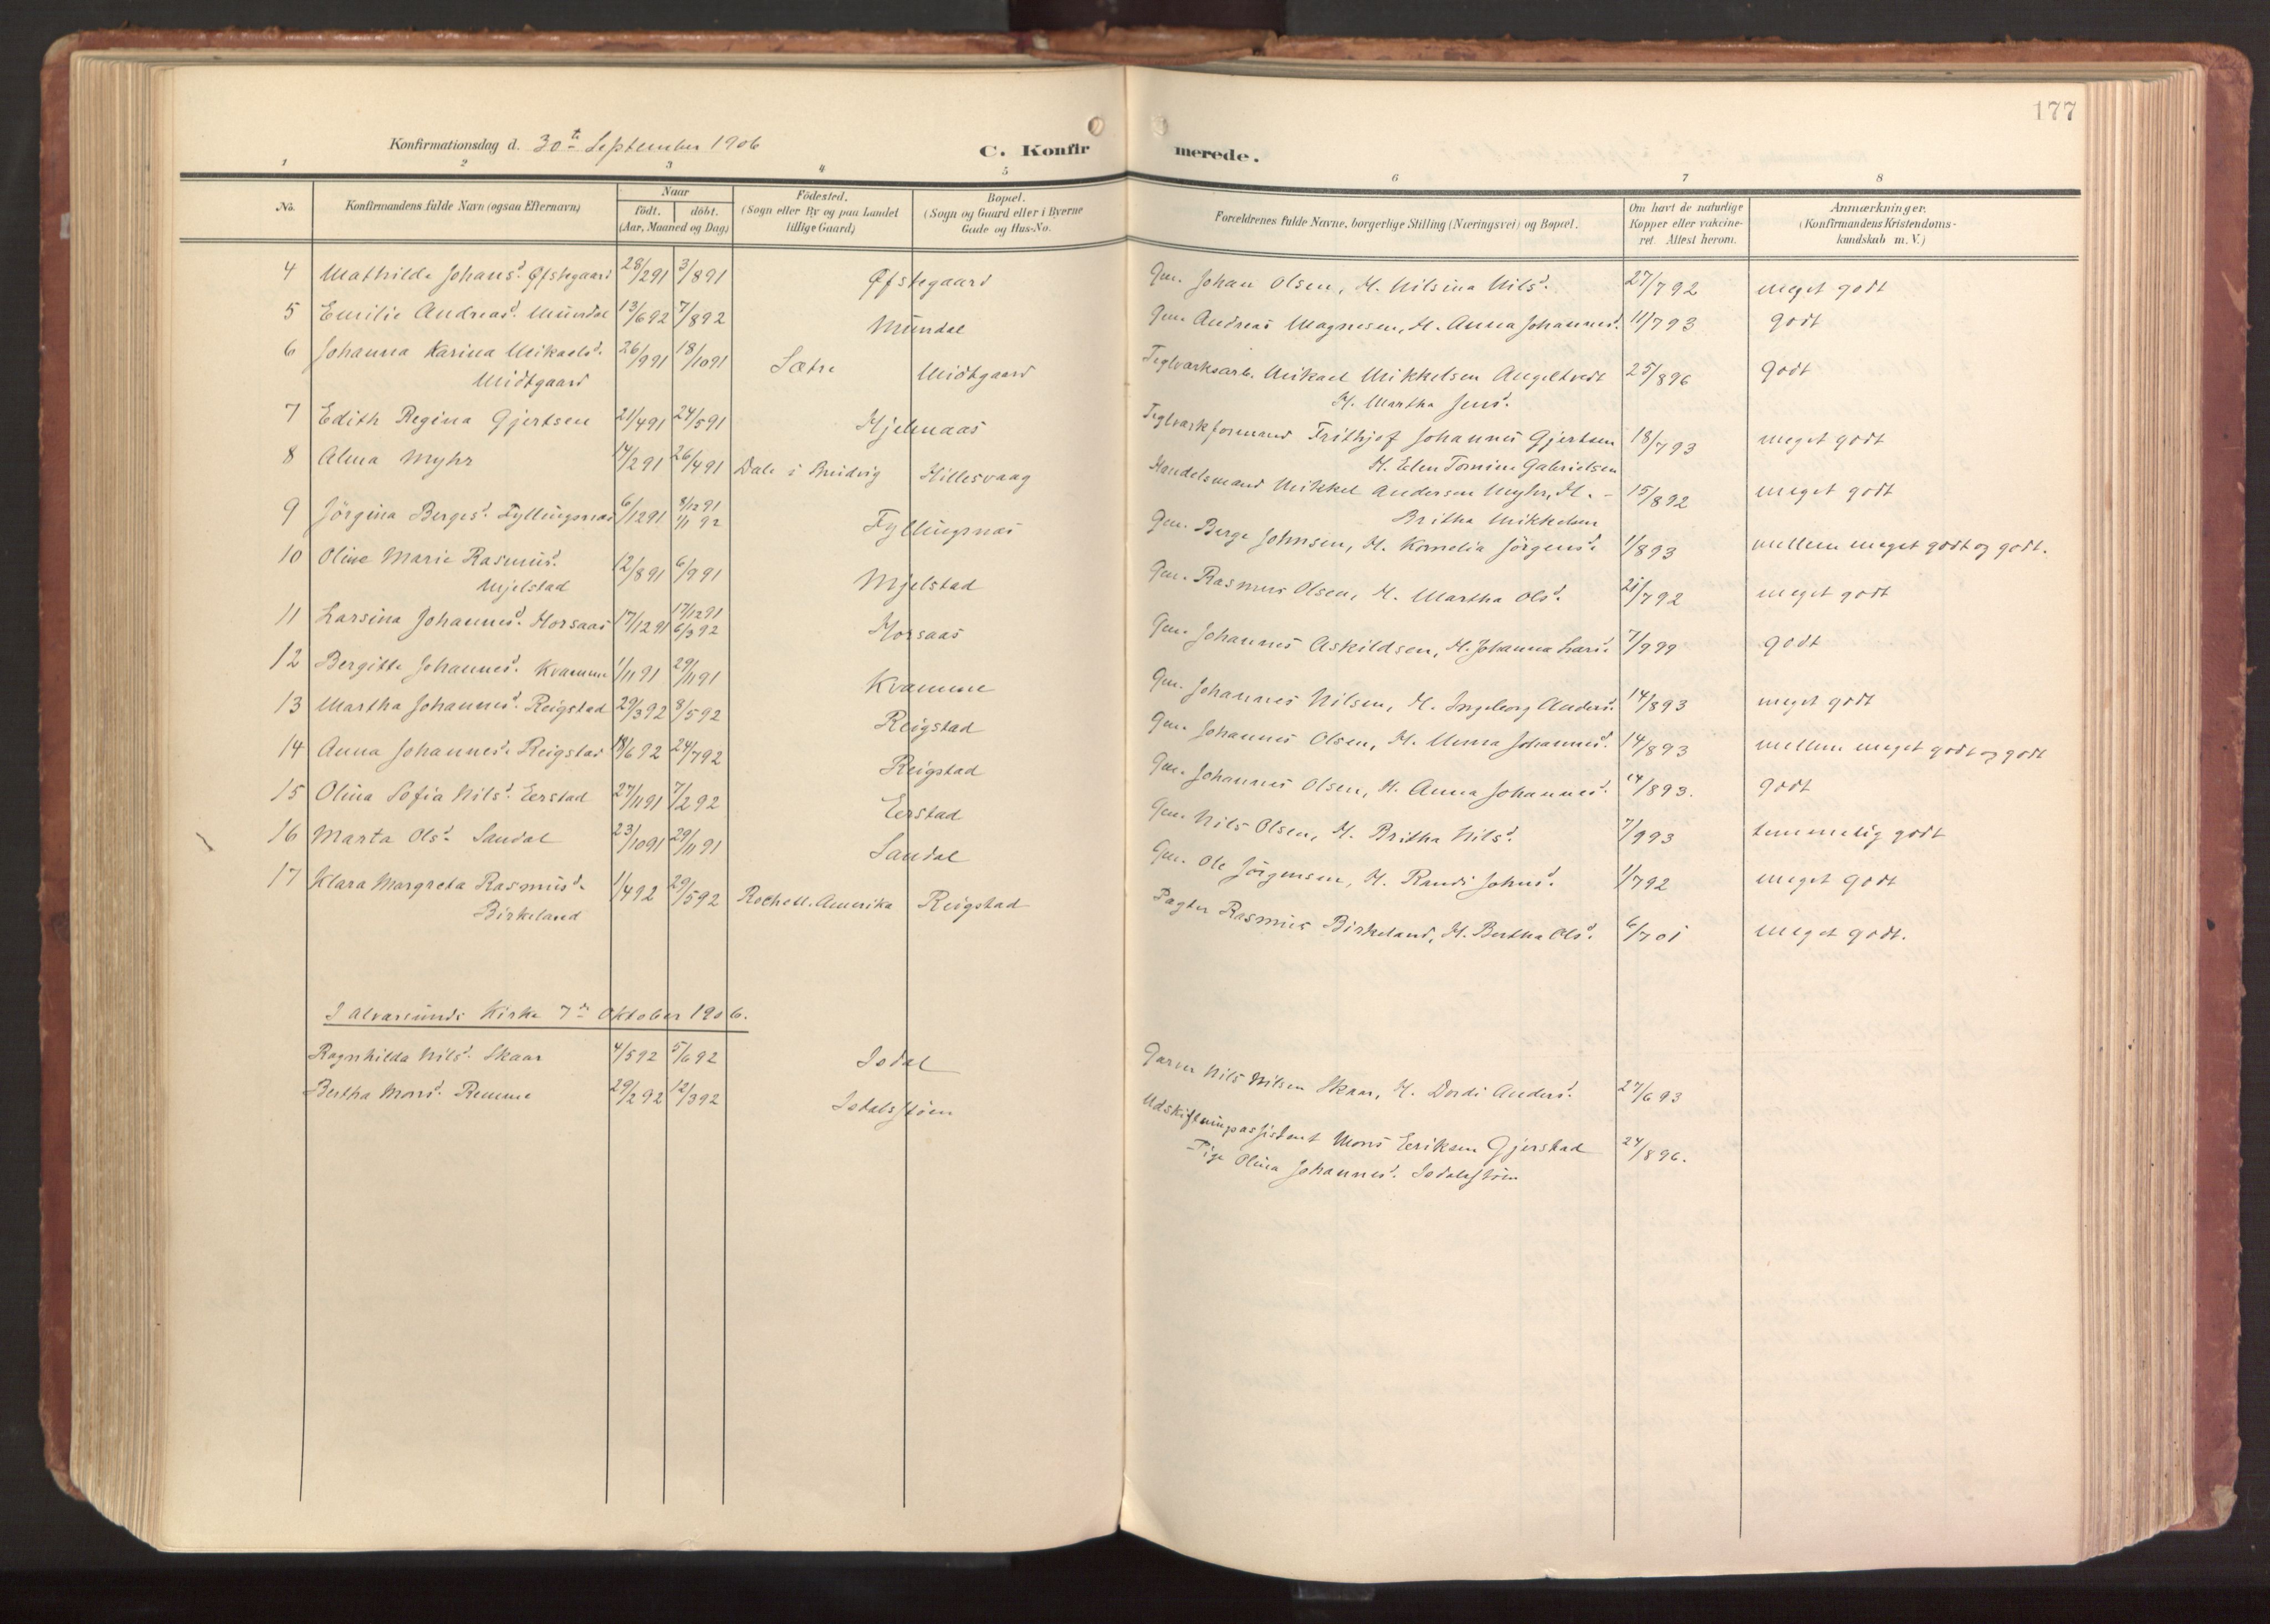 177
Konfirmationsdag d. 30te September 1906
C. Konfirmerede.
1 2 3 4 5 6 7 8
No. Konfirmandens fulde Navn (ogsaa Efternavn) Naar födt. döbt. (Aar, Maaned og Dag) Födested. (Sogn eller By og paa Landet tillige Gaard) Bopæl. (Sogn og Gaard eller i Byerne Gade og Hus-No. Forældrenes fulde Navne, borgerlige Stilling (Næringsvei) og Bopæl. Om havt de naturlige Kopper eller vakcineret. Attest herom. Anmærkninger. (Konfirmandens Kristendomskundskab m. V.)
4 Mathilda Johansd. Øfstegaard 28/291 3/891 Øfstegaard Gm. Johan Olsen, H. Nilsina Nilsd. 27/792 meget godt
5 Emilie Andreasd. Mundal 13/692 7/892 Mundal Gm. Andreas Magnesen, H. Anna Johannesd. 11/793 godt
6 Johanna Karina Mikaelsd. 26/991 18/1091 Sætre Midtgaard Teglværksarb. Mikael Mikkelsen Angeltvedt 25/896 godt
Midtgaard H. Martha Jensd.
7 Edith Regina Gjertsen 21/491 24/591 Hjelmaas Teglværkformand Frithjof Johannes Gjertsen 18/793 meget godt
H. Elen Tomine Gabrielsen
8 Alma Myhr 14/291 26/491 Dale i Bruvig Hillesvaag Handelsmand Mikkel Andersen Myhr, H. - 15/892 meget godt
Britha Mikkelsen
9 Jörgina Bergesd. Fyllingsnæs 6/1291 8/1291 1/1 92 Fyllingsnæs Gm. Berge Johnsen, H. Kornelia Jörgensd. 1/893 mellem meget godt og godt.
10 Oline Marie Rasmusd. 12/891 6/991 Mjelstad Gm. Rasmus Olsen, H. Martha Olsd. 21/792 meget godt
Mjelstad
11 Larsina Johannesd. Horsaas 17/1291 17/1291 6/392 Horsaas Gm. Johannes Askildsen, H. Johanna Larsd. 7/999 godt
12 Bergitte Johannesd. Kvamme 1/1191 29/1191 Kvamme Gm. Johannes Nilsen, H. Ingeborg Andersd. 14/893 meget godt
13 Martha Johannesd. Reigstad 29/392 8/592 Reigstad Gm. Johannes Olsen, H. Anna Johannesd. 14/893 mellem meget godt og godt
14 Anna Johannesd. Reigstad 18/692 24/792 Reigstad Gm. Johannes Olsen, H. Anna Johannesd. 14/893. godt
15 Olina Sofia Nilsd. Eerstad 27/1191 7/292 Eerstad Gm. Nils Olsen, H. Britha Nilsd. 7/993 temmelig godt
16 Marta Olsd. Sandal 23/1091 29/1191 Sandal Gm. Ole Jörgensen, H. Randi Johnsd. 1/792 meget godt
17 Klara Margreta Rasmusd. 1/492 29/592 Rochell. Amerika Reigstad Pagter Rasmus Birkeland, H. Bertha Olsd. 6/701 meget godt.
Birkeland
I Alversunds Kirke 7de Oktober 1906.
Ragnhilda Nilsd. Skaar 4/592 5/692 Isdal Garver Nils Nilsen Skaar, H. Dordi Andersd. 27/693
Bertha Monsd. Remme 29/292 12/392 Isdalsstöen Udskiftningsassistent Mons Eriksen Gjerstad 24/896.
Pige Olina Johannesd. Isdalsstöen